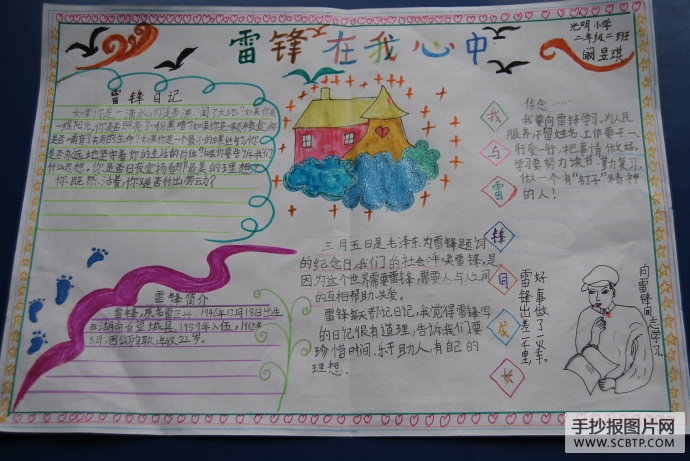 雷锋在我心中
光明小学
二年级二班
阚昱琪
雷锋日记
如果你是一滴水,你是否滋润了大地?如果你是
一线阳光,你是否照亮了一份黑暗?如果你是一颗粮食,你
是否哺育了有用的生命?如果你是一个最小的螺丝钉,你
是否永远地坚守着你的生活的岗位?如果你要告诉我们
什么思想,你是否日夜宣扬着那最美的理想?
你既然活着,你又是否付出劳动?
雷锋简介
雷锋,原名雷正兴,1940年12月18日出生
在湖南省望城县。1959年入伍,1962年
8月,因公殉职,年仅22岁。
三月五日是毛泽东为雷锋题词
的纪念日,我们的社会呼唤雷锋,是
因为这个世界需要雷锋,需要人与人之间
的互相帮助、关爱。
雷锋每天都记日记,我觉得雷锋写
的日记很有道理,告诉我们要
珍惜时间、乐于助人,有自己的
理想。
我
与
雷
锋
同
成
长
信念……
我要向雷锋学习,为人民
服务不留姓名,工作要干一
行爱一行,把事情做好。
学习要努力读书,努力复习,
做一个有“钉子”精神
的人!
好事做了一火车。
雷锋出差一千里,
向雷锋同志学习
手抄报图片网
WWW.SCBTP.COM